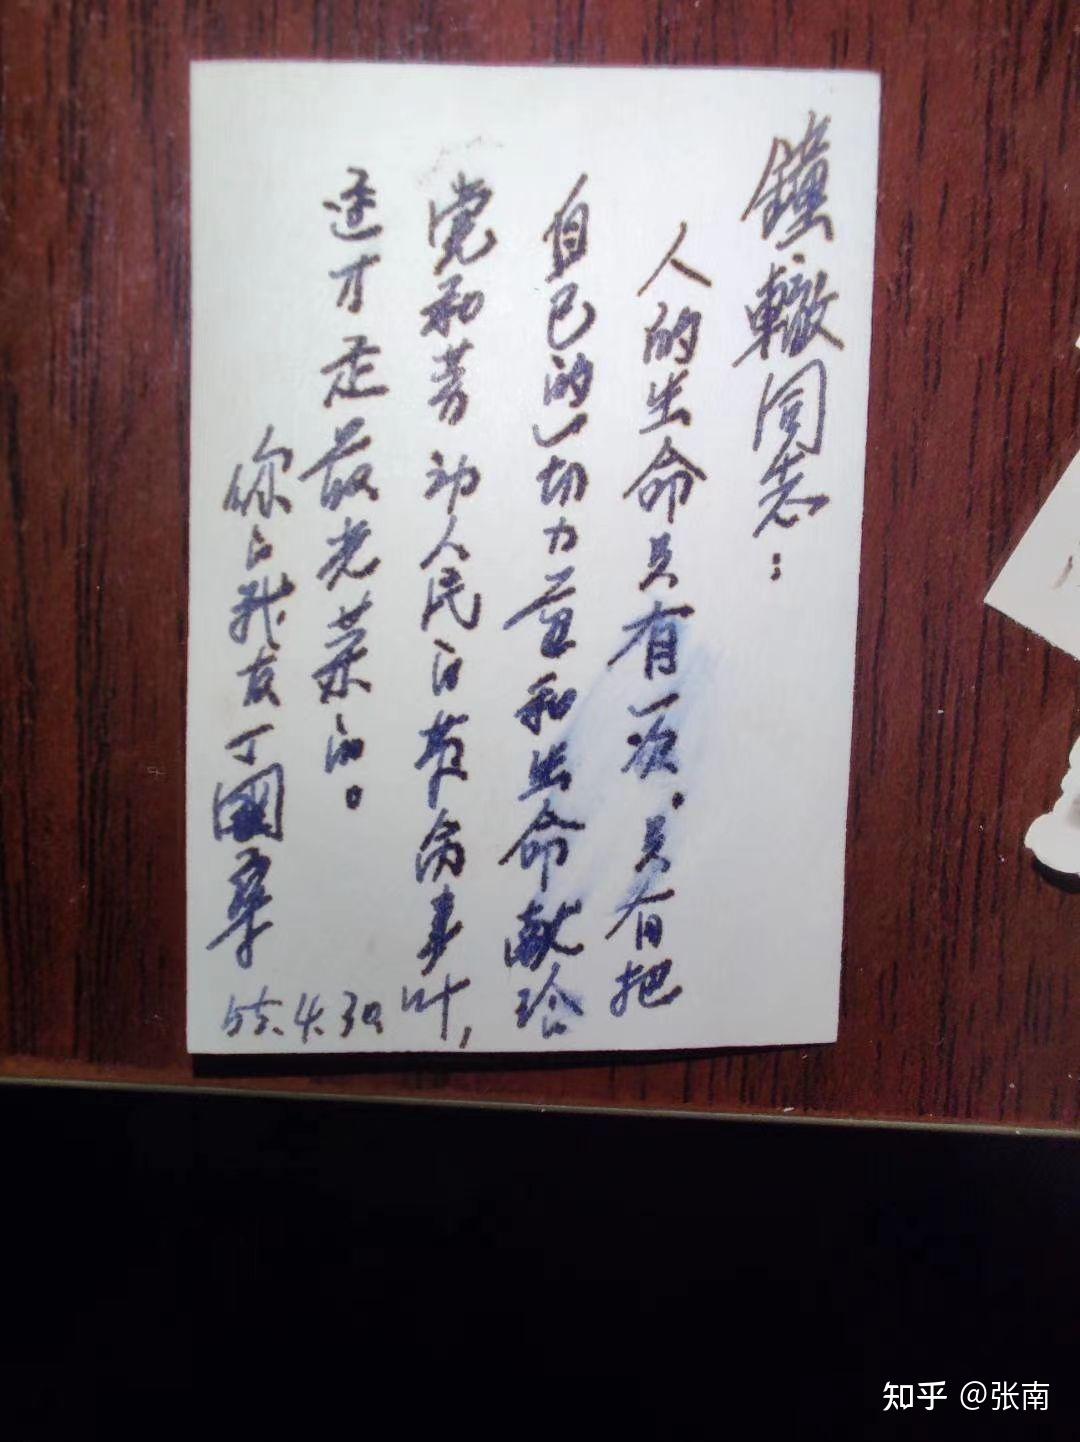 鐘轍同志：
人的生命只有一次．只有把
自己的一切力量和生命献给
党和劳动人民的解放事叶，
这才是最光荣的。
你的战友丁國章
55.4.30
知乎 @张南